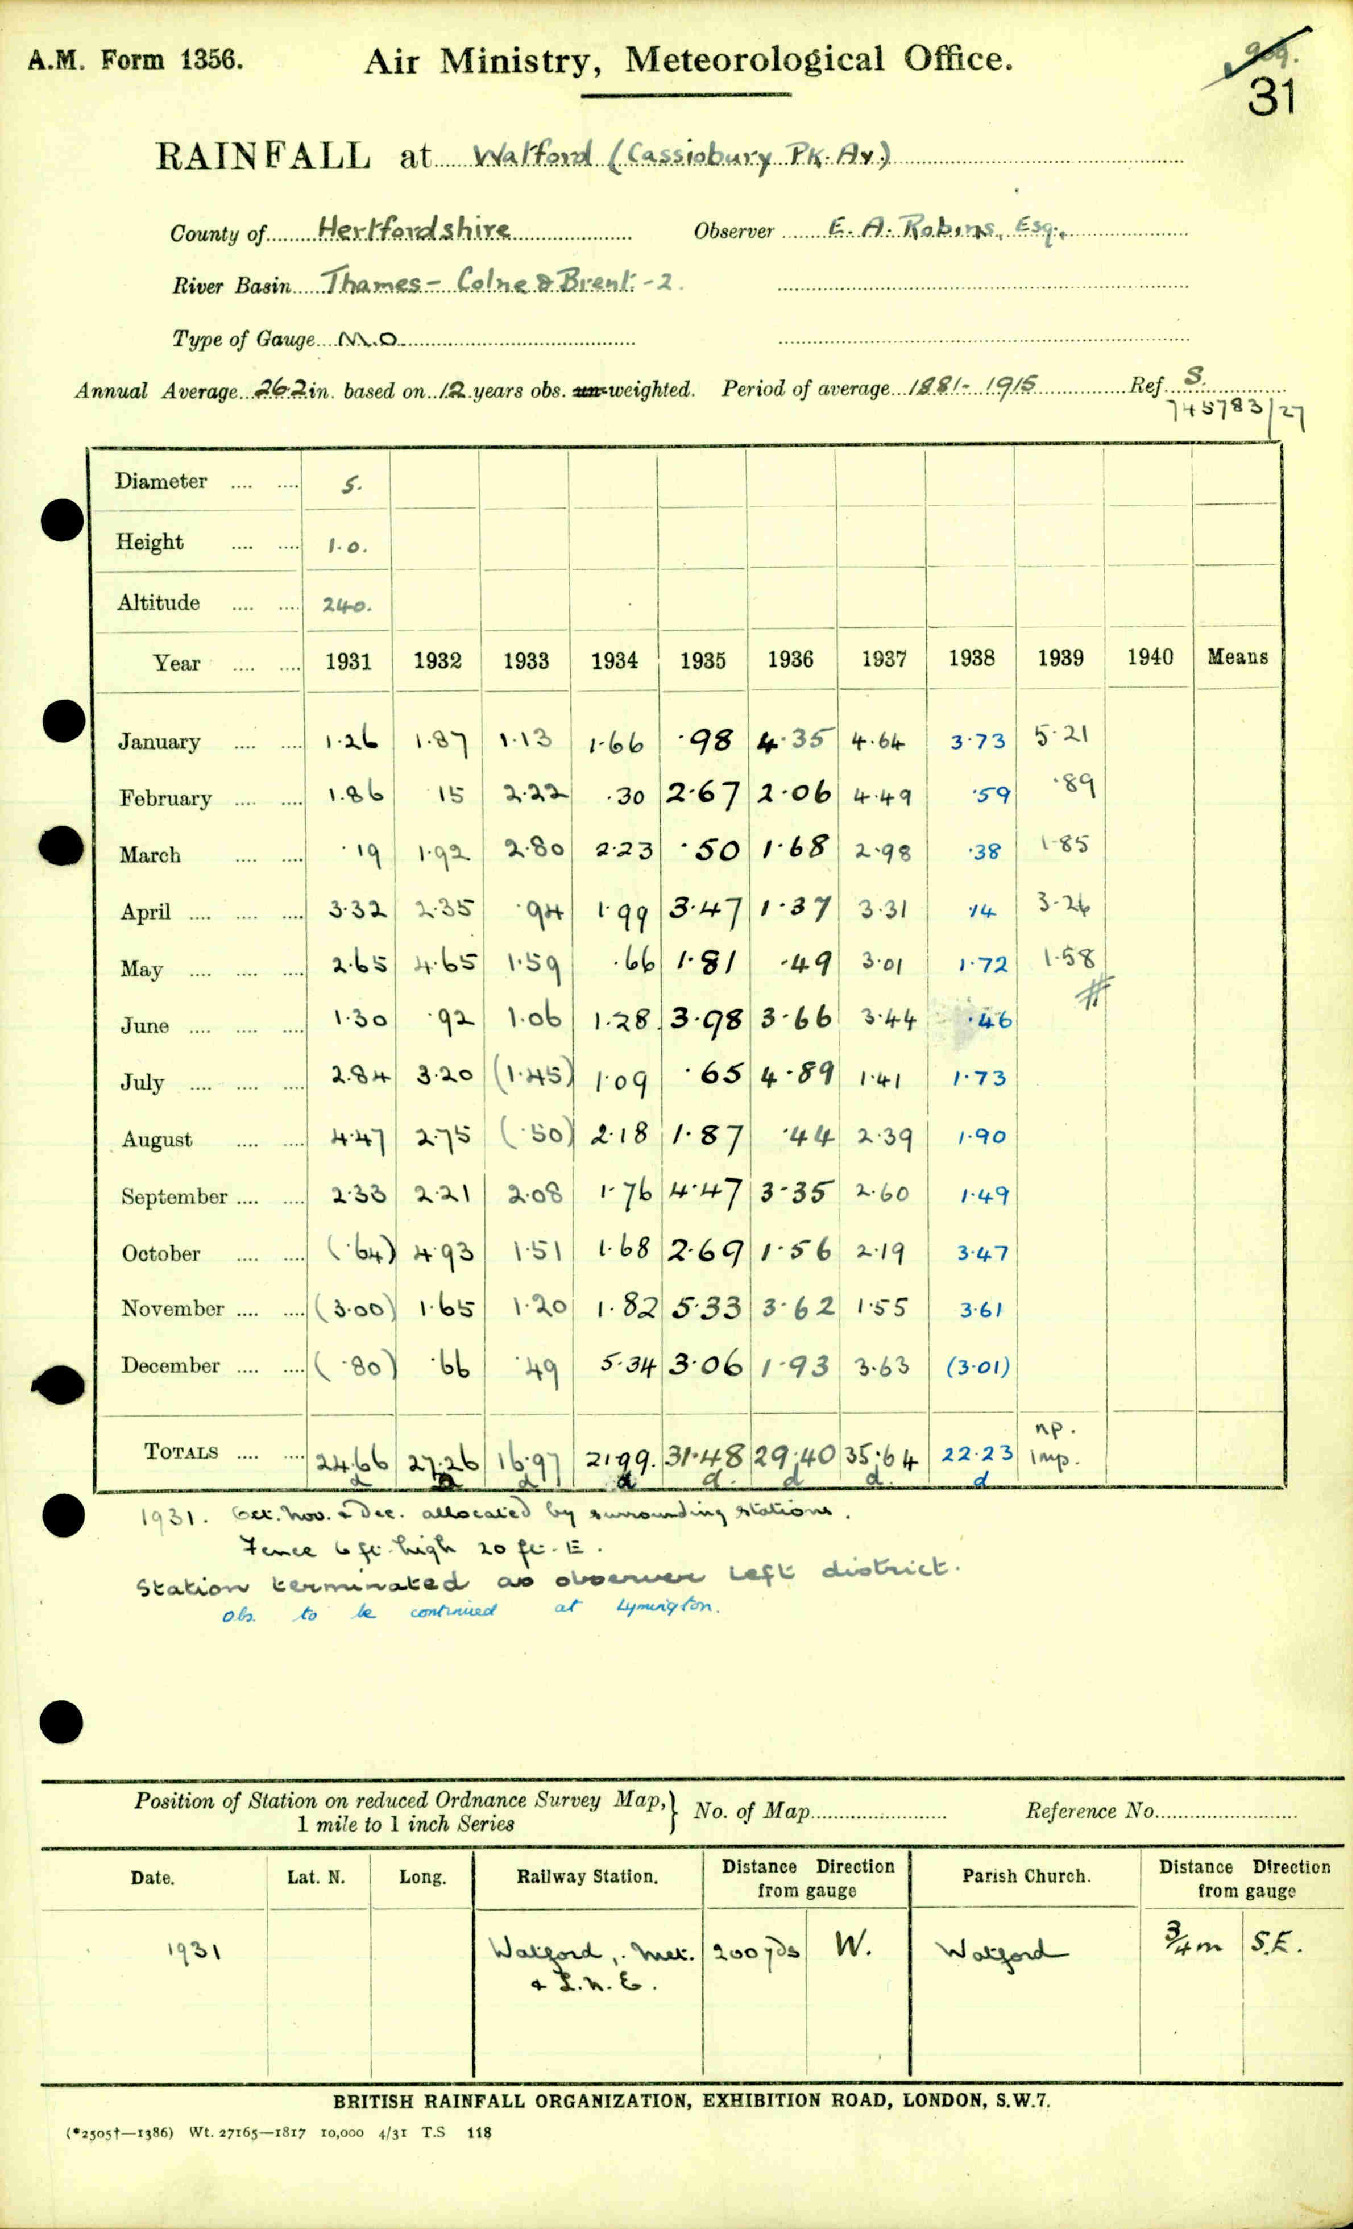 A.M. Form 1356.
Air Ministry, Meteorological Office.
31
RAINFALL at Watford (Cassiobury Pk. Av.)
County of Hertfordshire Observer E. A. Robins, Esq.,
River Basin Thames - Colne & Brent - 2.
Type of Gauge M.O
Annual Average 26.2 in. based on 12 years obs. un-weighted. Period of average 1881-1915 Ref. S.
745783/27
Diameter .... .... 5.
Height .... .... 1.0.
Altitude .... .... 240.
Year .... .... 1931 1932 1933 1934 1935 1936 1937 1938 1939 1940 Means
January .... .... 1.26 1.87 1.13 1.66 .98 4.35 4.64 3.73 5.21
February .... .... 1.86 15 2.22 .30 2.67 2.06 4.49 .59 .89
March .... .... .19 1.92 2.80 2.23 .50 1.68 2.98 .38 1.85
April .... .... .... 3.32 2.35 .94 1.99 3.47 1.37 3.31 .14 3.26
May .... .... .... 2.65 4.65 1.59 .66 1.81 .49 3.01 1.72 1.58
#
June .... .... .... 1.30 .92 1.06 1.28 3.98 3.66 3.44 .46
July .... .... .... 2.84 3.20 (1.45) 1.09 .65 4.89 1.41 1.73
August .... .... 4.47 2.75 (.50) 2.18 1.87 .44 2.39 1.90
September .... .... 2.33 2.21 2.08 1.76 4.47 3.35 2.60 1.49
October .... .... (.64) 4.93 1.51 1.68 2.69 1.56 2.19 3.47
November .... .... (3.00) 1.65 1.20 1.82 5.33 3.62 1.55 3.61
December .... .... (.80) .66 .49 5.34 3.06 1.93 3.63 (3.01)
np.
TOTALS .... .... 24.66 27.26 16.97 21.99. 31.48 29.40 35.64 22.23 imp.
d d d d d. d d. d
1931. Oct. Nov. & Dec. allocated by surrounding stations.
Fence 6 ft high 20 ft. E.
Station terminated as observer left district.
obs. to be continued at Lymington.
Position of Station on reduced Ordnance Survey Map, } No. of Map Reference No.
1 mile to 1 inch Series
Date. Lat. N. Long. Railway Station. Distance Direction from gauge Parish Church. Distance Direction from gauge
1931 Watford, Met. 200 yds W. Watford 3/4 m S.E.
& L.N.E.
BRITISH RAINFALL ORGANIZATION, EXHIBITION ROAD, LONDON, S.W.7.
(*2505†—1386) Wt. 27165—1817 10,000 4/31 T.S 118